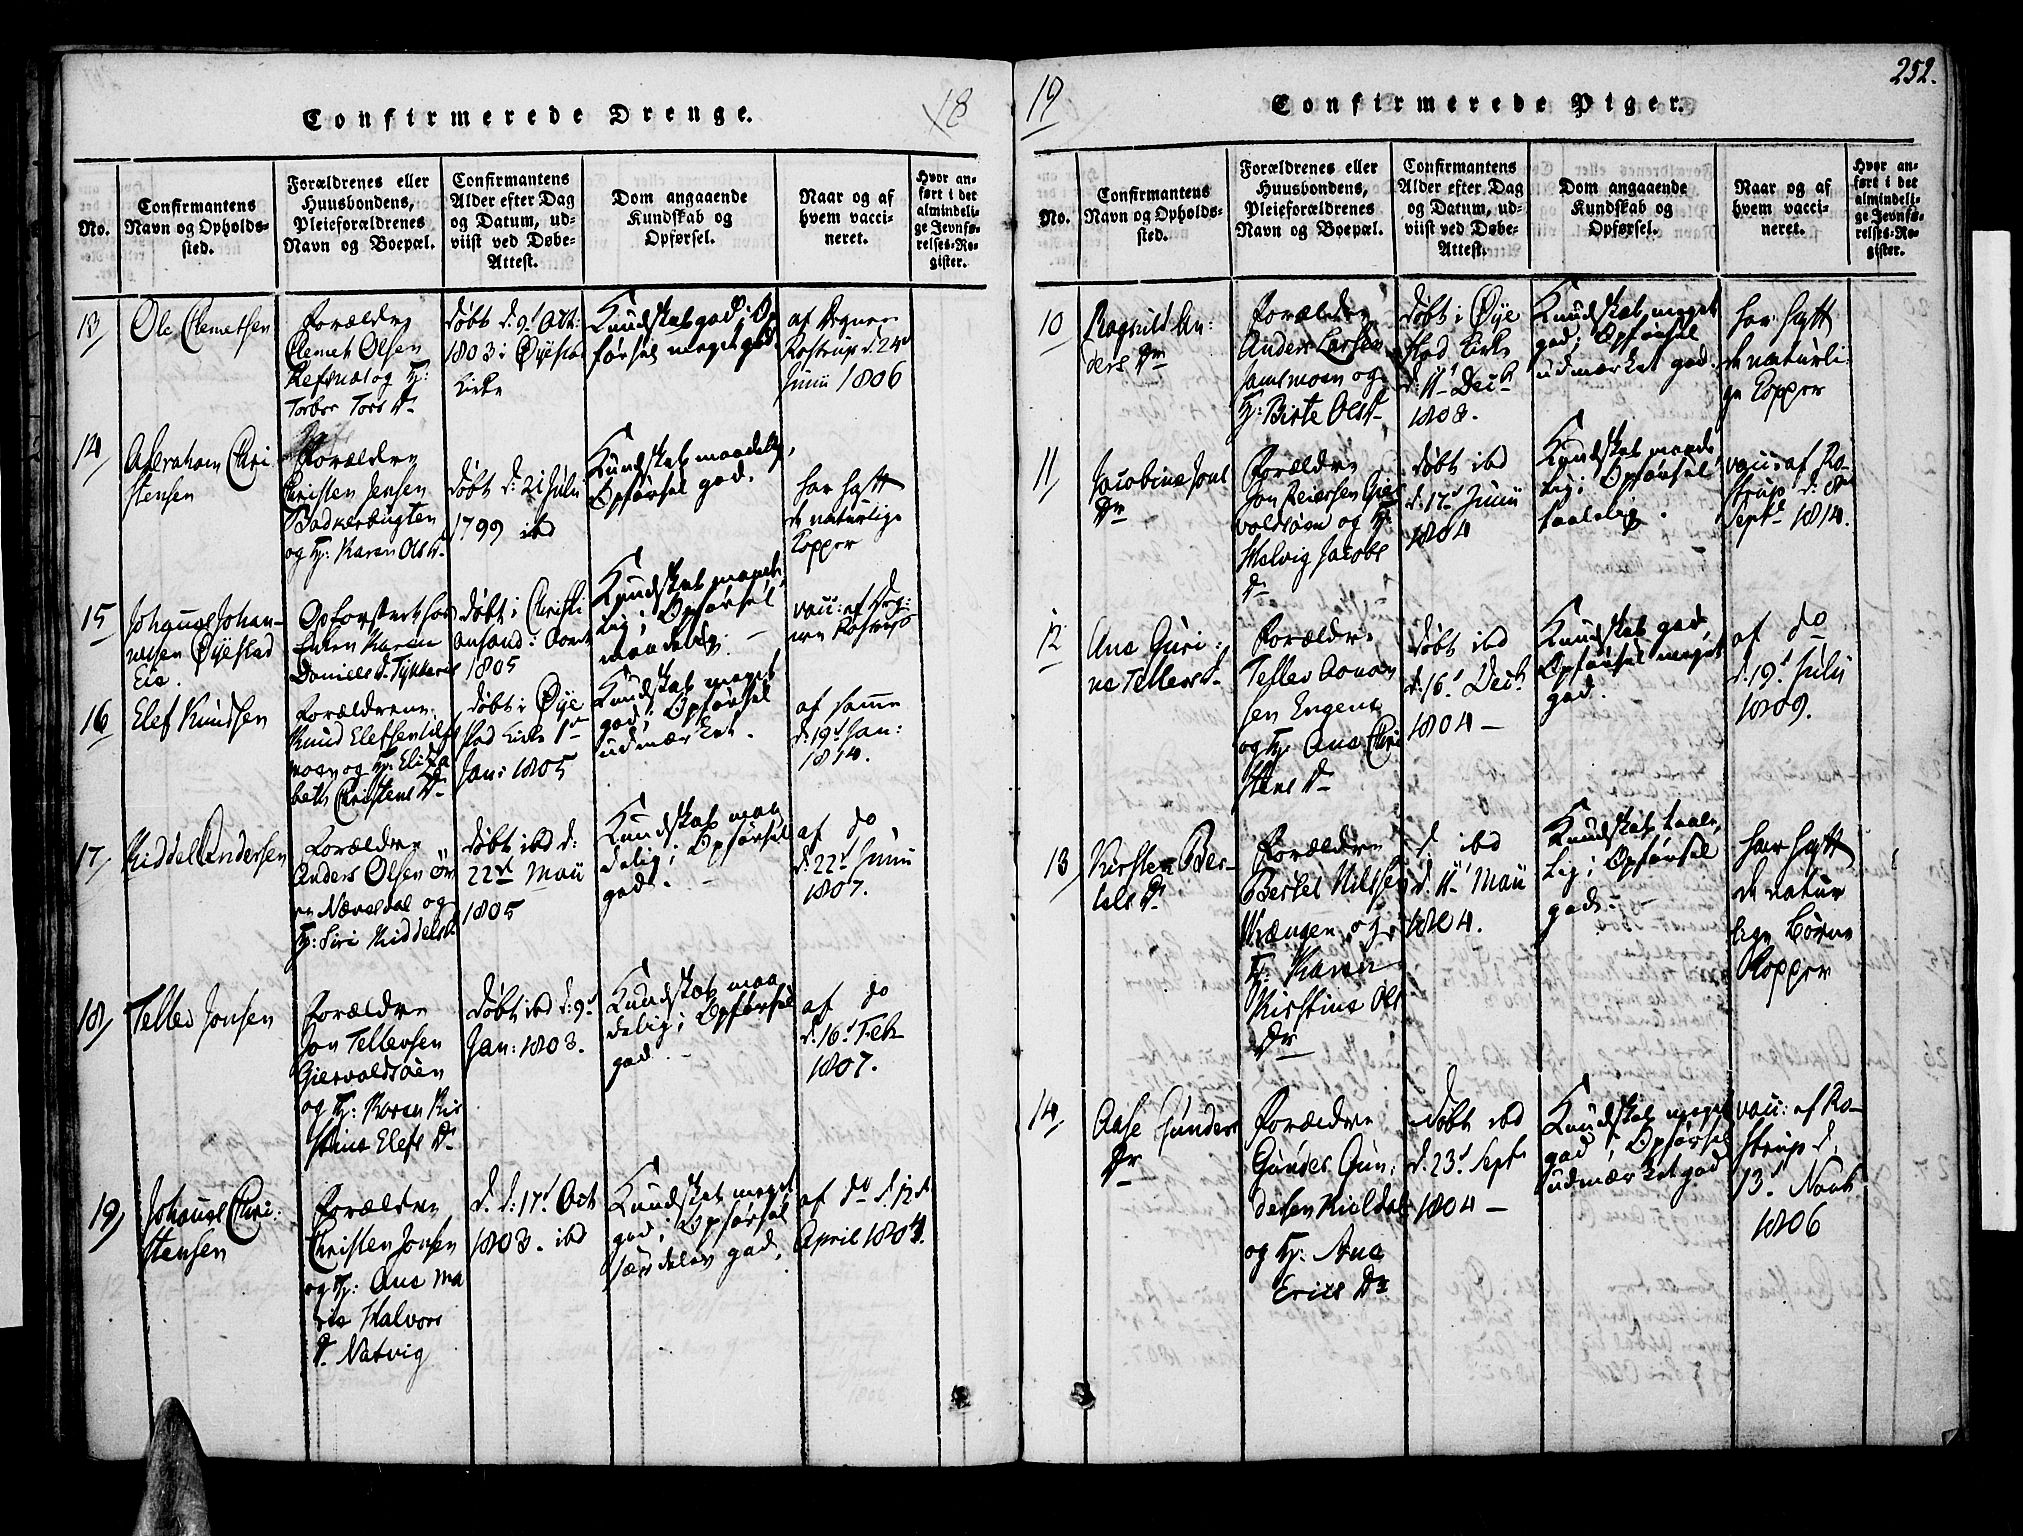 Confirmerede Drenge.
18
No.
Confirmantens
Navn og Opholds-
sted.
Forældrenes eller
Huusbondens,
Pleieforældrenes
Navn og Boepæl.
Confirmantens
Alder efter Dag
og Datum, ud-
viist ved Døbe-
Attest.
Dom angaaende
Kundskab og
Opførsel.
Naar og af
hvem vacci-
neret.
Hvor an-
ført i det
almindeli-
ge Jevnfø-
relses-Re-
gister.
13
Ole Clemetsen
Forældre
Clemet Olsen
Refsnæs og H:
Torbor Tors D.
døbt d: 9d Oct:
1803 i Øyestad
Kirke
Kundskab god; Op
førsel meget god.
af Degnen
Rostrup d. 24d
Junii 1806
14
Abraham Chri
stensen
Forældre
Christen Jensen
Badkerbugten
og H: Karen Ols D.
døbt d: 21 Julii
1799 ibd
Kundskab maadelig,
Opførsel god.
har haft
de naturlige
Kopper
15
Johannes Johan-
nesen Øyestad
Eie.
Opfostret hos
Enken Karen
Daniels D. Tykkeres
døbt i Christi
ansand:
1805
Kundskab maade-
lig; Opførsel
maadelig.
vacc: af Deg:
nen Rostrup
16
Elef Knudsen
Forældrene
Knud Elefsen
moen og H: Elisa
beth Christens D.
døbt i Øye
stad Kirke 1d
Jan: 1805
Kundskab meget
god; Opførsel
udmærket.
af samme
d. 19d Jan:
1814.
17
Kiddel Andersen
Forældre
Anders Olsen øv
re Næveldal og
H: Siri Kiddels D.
døbt ibd d:
22d Maii
1805
Kundskab maa
delig; Opførsel
god.
af do
d. 22d Junii
1807.
18
Tellev Jonsen
Forældre
Jon Tellevsen
Giervoldsøen
og H: Karen Kir
stine Elefs D.
døbt ibd d: 9d
Jan: 1803.
Kundskab maa
delig; Opførsel
god.
af do
d. 16d Feb
1807.
19
Johannes Chri:
stensen
Forældre
Christen Jonsen
og H: Ane Ma
rie Halvors
D. Natvig
d. d: 17d Oct
1803. ibd
Kundskab meget
god; Opførsel
særdeles god.
af do d. 12d
April 1804.
19
Confirmerede Piger.
252.
No.
Confirmantens
Navn og Opholds-
sted.
Forældrenes eller
Huusbondens,
Pleieforældrenes
Navn og Boepæl.
Confirmantens
Alder efter Dag
og Datum, ud-
viist ved Døbe-
Attest.
Dom angaaende
Kundskab og
Opførsel.
Naar og af
hvem vacci-
neret.
Hvor an-
ført i det
almindeli-
ge Jevnfø-
relses-Re-
gister.
10
Ragnild An:
ders Dr
Forældre
Anders Larsen
Jamsmoen og
H: Birte Ols D.
døbt i Øye
stad Kirke
d. 11d Decb
1803.
Kundskab meget
god; Opførsel
udmærket god.
har haft
de naturli-
ge Kopper
11
Jacobine Jons
Dr
Forældre
Jon Reiersen Gier
voldsøen og H:
Helvig Jacobs
D.
døbt ibd
d. 17d Junii
1804
Kundskab maade
lig; Opførsel
taalelig.
vacc: af Ro-
strup d: 8d
Septb 1814.
12
Ane Guri:
ne Tellevs D.
Forældre
Tellev
sen Engene
og H: Ane Chri
stens D.
døbt ibd
d. 16d Decb
1804 -
Kundskab god,
Opførsel meget
god.
af do
d. 19d Julii
1809.
13
Kirsten Ber-
tels D.
Forældre
Bertel Nilsen
Vrængen og
H: Karen
Kirstine Ols
Dr
d ibd
d. 11d Maii
1804.
Kundskab taale-
lig; Opførsel
god.
har haft
de natur
lige Børne
Kopper
14
Aase Gunders
Dr
Forældre
Gunder Gun:
dersen Kieldal
og H: Ane
Erics Dr
døbt ibd
d. 23d Septr
1804 -
Kundskab meget
god; Opførsel
udmærket god
vacc: af Ro-
strup d.
13d Novb
1806